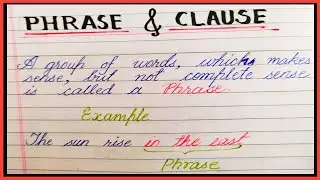 PHRASE & CLAUSE
A group of words, which makes
sense, but not complete sense
is called a Phrase.
Example
The sun rise in the east
Phrase